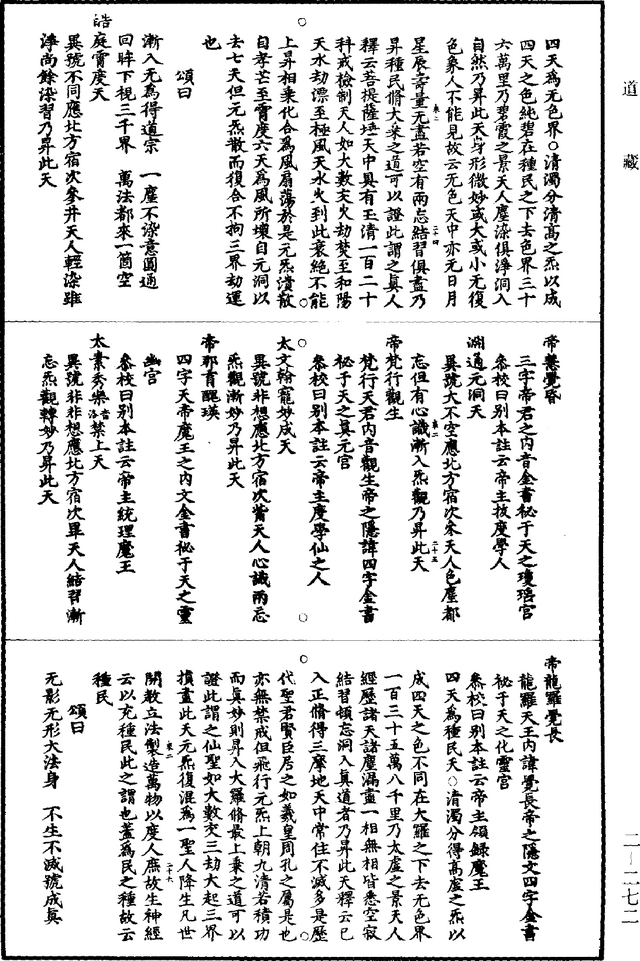 道藏
四天為无色界○清濁分清高之炁以成
四天之色純碧在種民之下去色界三十
六萬里乃碧霞之景天人塵染俱淨洞入
自然乃昇此天身形微妙或大或小无復
色象人不能見故云无色天中亦无日月
星辰壽量无盡若空有兩忘結習俱盡乃
昇種民脩大乘之道可以證此謂之真人
釋云菩提薩埵天中具有玉清一百二十
科戒檢制天人如大數交火劫焚至和陽
天水劫漂至極風天水火到此衰絕不能
上昇相乗化合為風扇蕩於是元炁潰散
自孝芒至霄度六天為風所壞自元洞以
去七天但元炁散而復合不拘三界劫運
也
頌曰
漸入无為得道宗　一塵不染意圓通
回眸下視三千界　萬法都來一箇空
皓庭霄度天
異號不同應北方宿次參井天人輕染雖
淨尚餘染習乃昇此天
帝慧覺昏
三字帝君之内音金書秘于天之瓊瑤宮
參校曰别本註云帝主拔度學人
淵通元洞天
異號大不空應北方宿次朱天人色塵都
忘但有心識漸入炁觀乃昇此天
帝梵行觀生
梵行天君内音觀生帝之隱諱四字金書
秘于天之真元宮
參校曰别本註云帝主度學仙之人
太文翰寵妙成天
異號非想應北方宿次觜天人心識兩忘
炁觀漸妙乃昇此天
帝那育醜瑛
四字天帝魔王之内文金書秘于天之靈
幽宮
參校曰别本註云帝主統理魔王
太素秀樂音洛禁上天
異號非非想應北方宿次畢天人結習漸
忘炁觀轉妙乃昇此天
帝龍羅覺長
龍羅天王内諱覺長帝之隱文四字金書
秘于天之化靈宮
參校曰别本註云帝主領錄魔王
四天為種民天○清濁分得高虛之炁以
成四天之色不同在大羅之下去无色界
一百三十五萬八千里乃太虛之景天人
經歷諸天諸塵漏盡一相無相皆悉空寂
結習頓忘洞入真道者乃昇此天釋云已
入正脩得三摩地天中常住不滅多是歷
代聖君賢臣居之如羲皇周孔之屬是也
亦無禁戒但飛行元炁上朝九清若積功
而真妙則昇入大羅脩最上乗之道可以
證此謂之仙聖如大數交三劫大起三界
損盡此天元炁復混為一聖人降生凡世
開教立法製造萬物以度人庶故生神經
云以充種民此之謂也蓋為民之種故云
種民
頌曰
无影无形大法身　不生不滅號成真
二－二七二